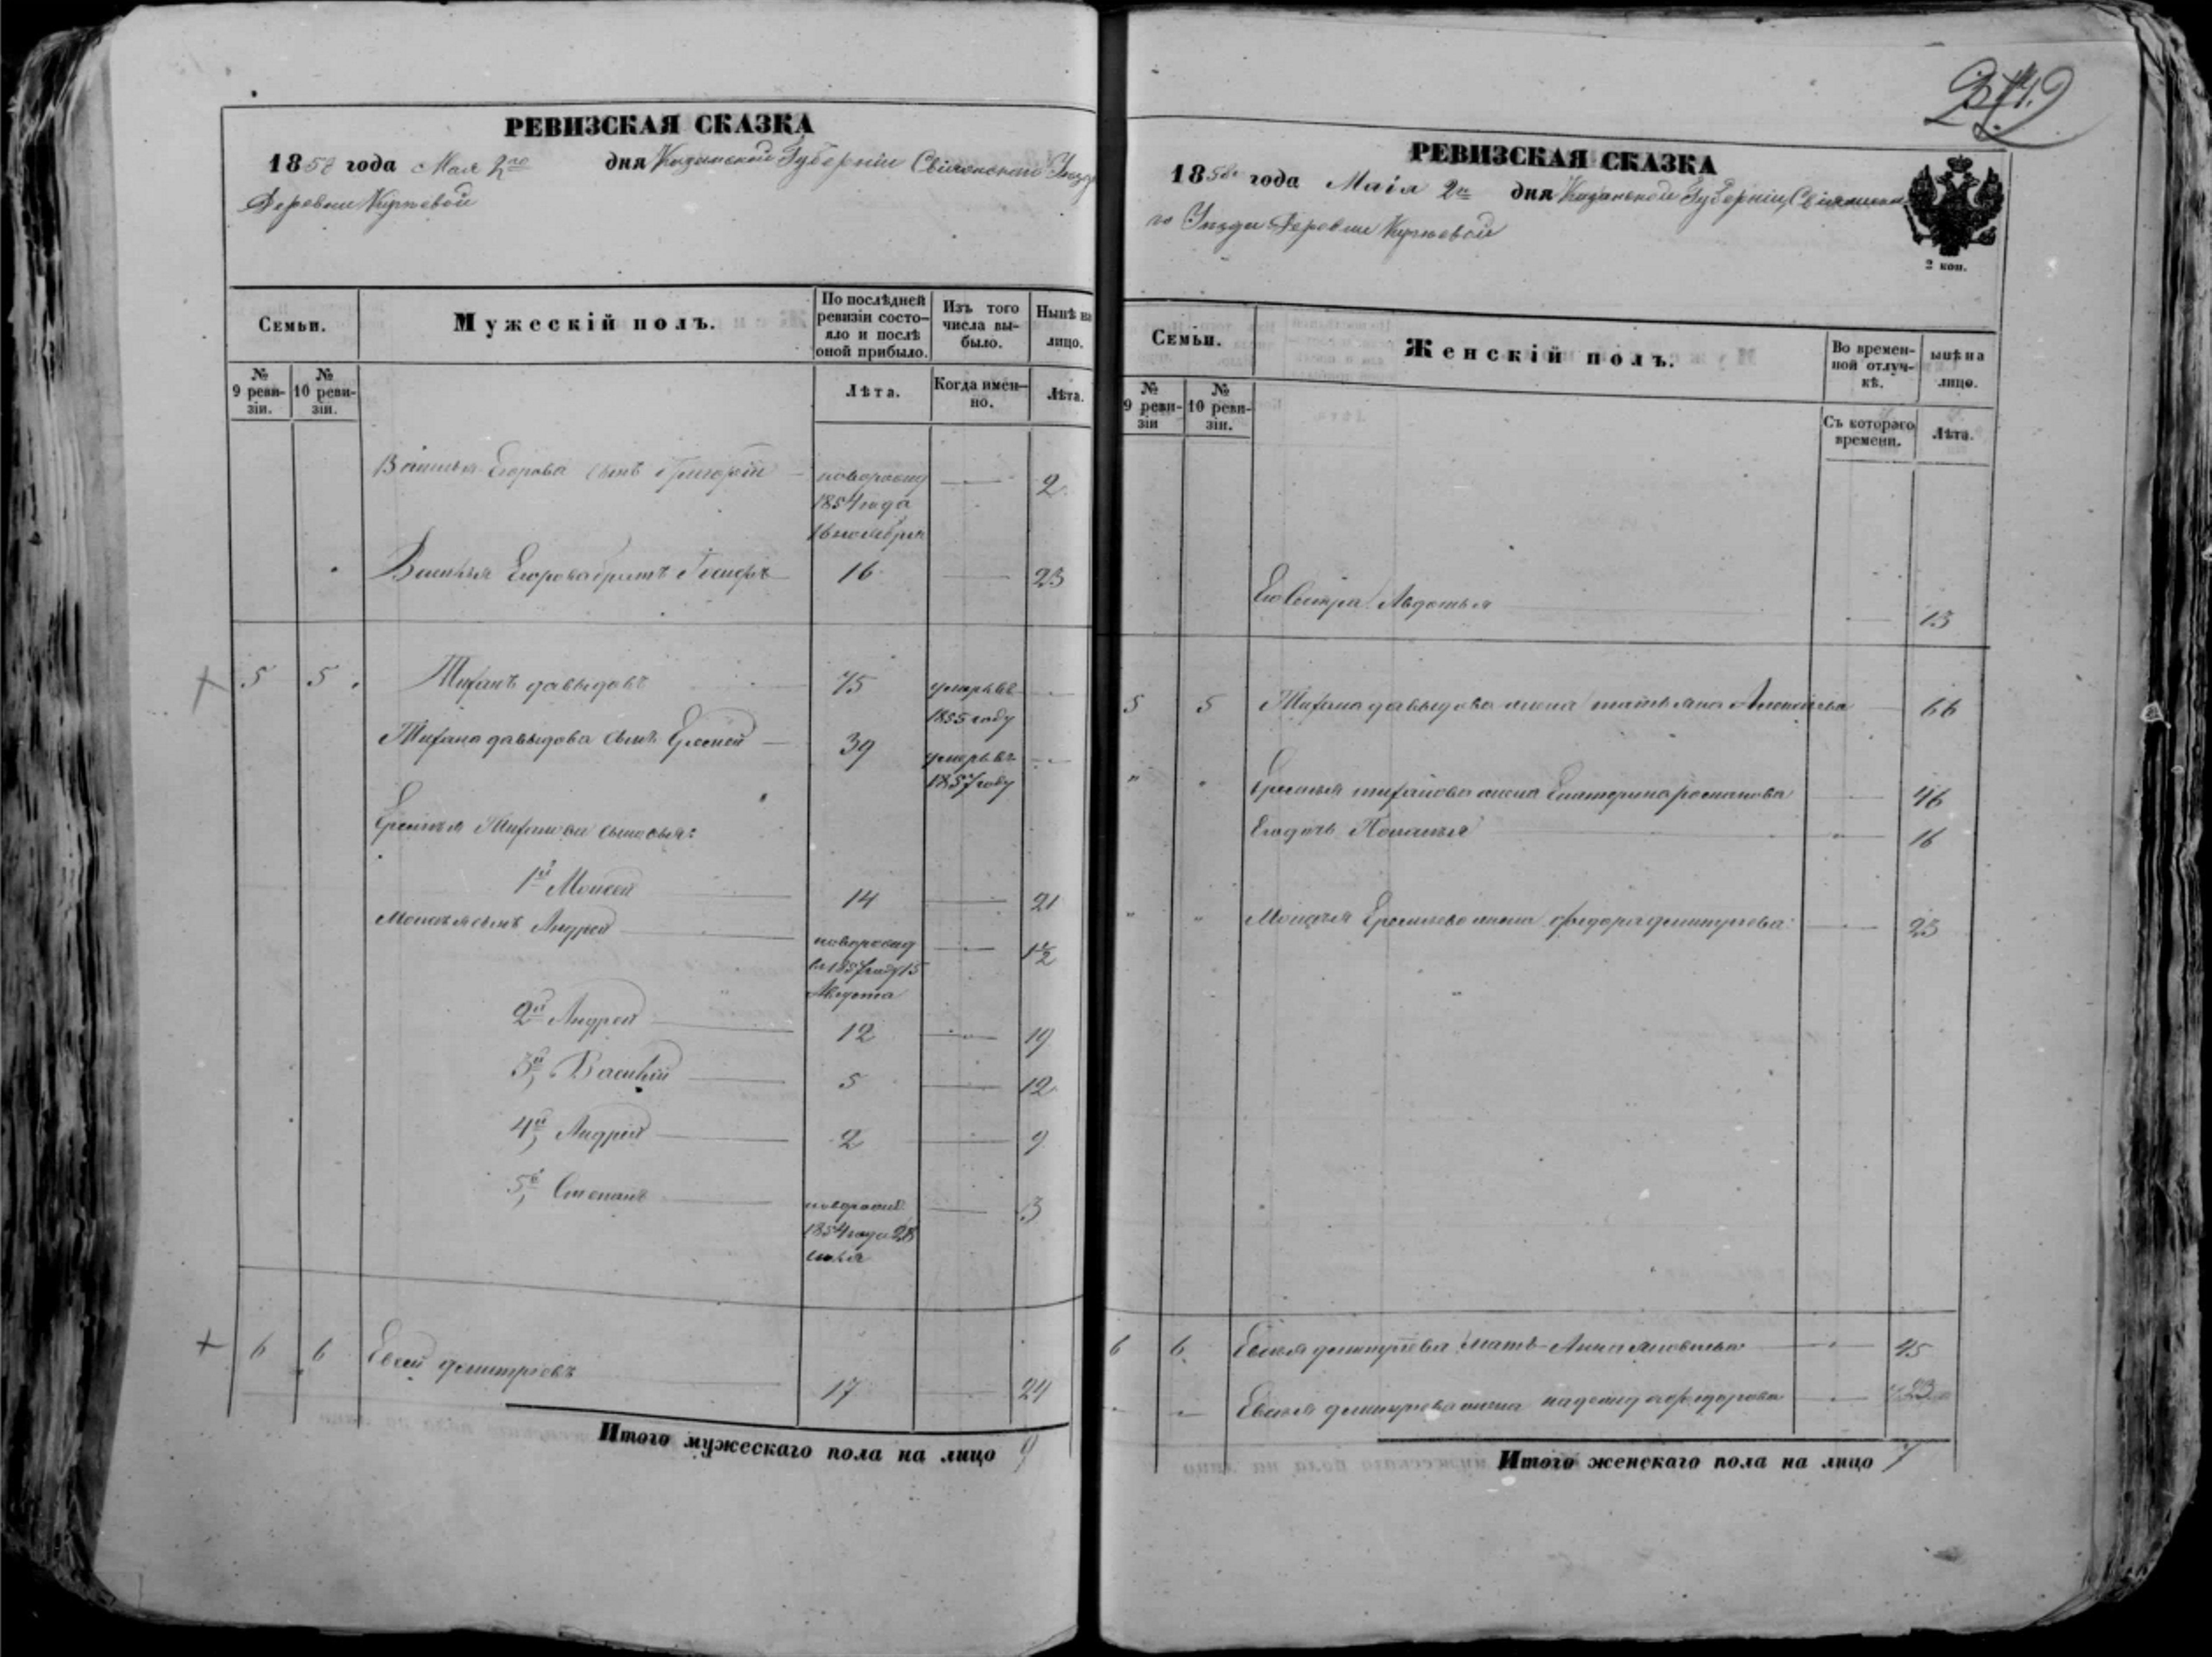 РЕВИЗСКАЯ СКАЗКА
1858 года Мая 2го дня Казанской Губерніи Свіяжскаго Уезда
Деревни
Семьи.
Мужескій полъ.
По послѣдней ревизіи состо-
яло и послѣ оной прибыло.
Изъ того числа вы-
было.
Нынѣ на лицо.
№ 9 реви-
зіи.
№ 10 реви-
зіи.
Лѣта.
Когда имен-
но.
Лѣта.
Василья Егорова сынъ Григорій новорожд 2
1854 года
16 ноября
Василья Егорова братъ 16 23
5 5 Давыдовъ 75 умеръ въ
1855 году
давыдова сынъ Еремей 39 умеръ въ
1857 году
сыновья:
1й Моисей 14 21
Моисея сынъ Андрей новорожд 1/2
въ 1857 году 15
Августа
2й Андрей 12 19
3й Василій 5 12
4й Андрей 2 9
5й Степанъ новорожд 3
1854 года 28
6 6 Евсей дмитріевъ 17 24
Итого мужескаго пола на лицо 9
РЕВИЗСКАЯ СКАЗКА
1858 года Маія 2го дня Казанской Губерніи Свіяжска
го Уезда Деревни
2 коп.
Семьи.
Женскій полъ.
Во времен-
ной отлуч-
кѣ.
ынѣ на
лицо.
№ 9 реви-
зіи
№ 10 реви-
зіи.
Съ котораго времени.
Лѣта.
Его Сестра Авдотья 13
5 5 давыдова жена татьяна 66
жена Екатерина романова 46
Его дочь 16
Моисея жена федора дмитріева 23
6 6 Евсея дмитріева мать Анна 45
Евсея дмитріева жена надежда федорова 23
Итого женскаго пола на лицо 7